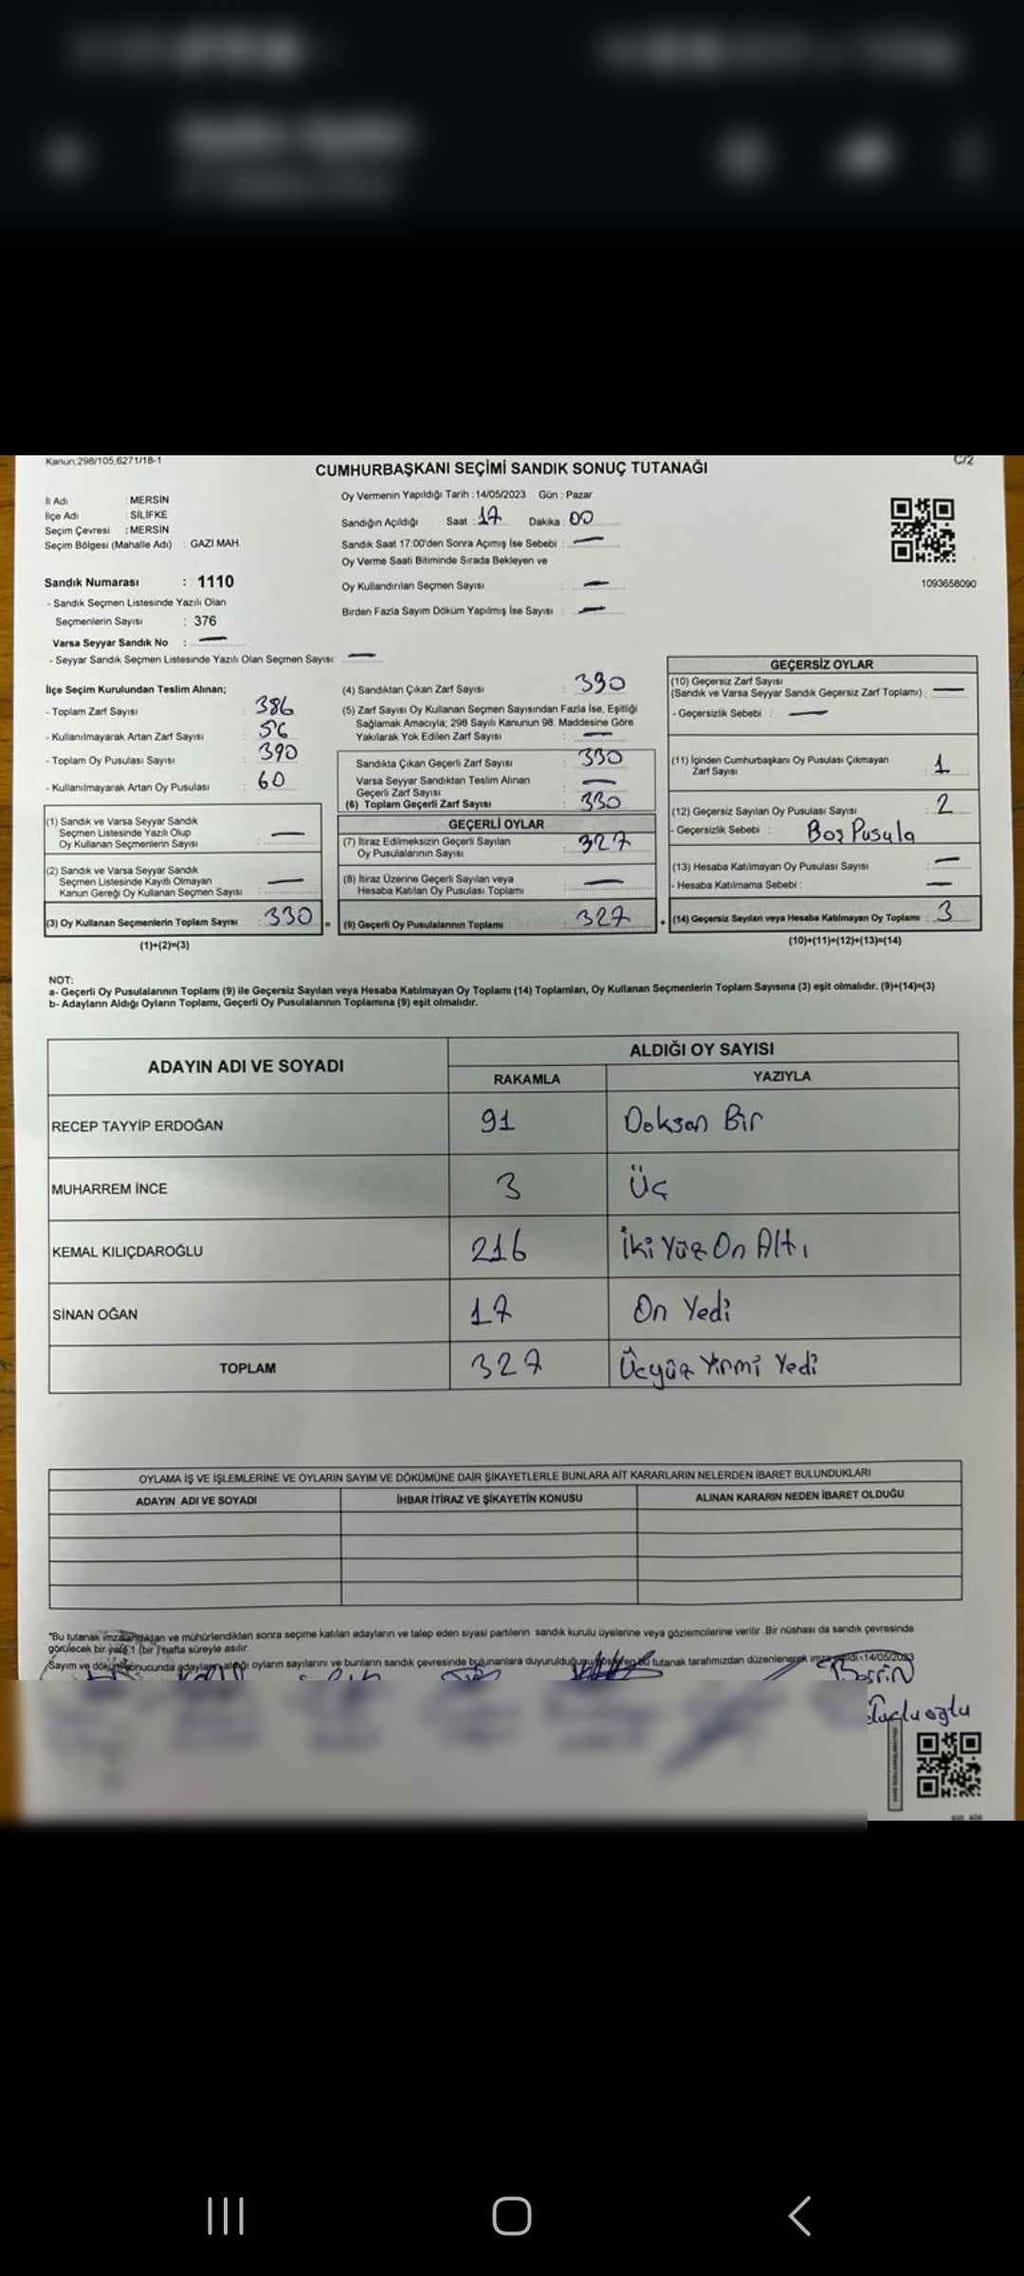 Kanun:298/105,6271/18-1
C/2
CUMHURBAŞKANI SEÇİMİ SANDIK SONUÇ TUTANAĞI
İl Adı : MERSİN
İlçe Adı : SİLİFKE
Seçim Çevresi : MERSİN
Seçim Bölgesi (Mahalle Adı) : GAZİ MAH.
Sandık Numarası : 1110
- Sandık Seçmen Listesinde Yazılı Olan
Seçmenlerin Sayısı : 376
Varsa Seyyar Sandık No : —
- Seyyar Sandık Seçmen Listesinde Yazılı Olan Seçmen Sayısı: —
Oy Vermenin Yapıldığı Tarih : 14/05/2023 Gün : Pazar
Sandığın Açıldığı Saat : 17 Dakika : 00
Sandık Saat 17:00'den Sonra Açımış İse Sebebi : —
Oy Verme Saati Bitiminde Sırada Bekleyen ve
Oy Kullandırılan Seçmen Sayısı : —
Birden Fazla Sayım Döküm Yapılmış İse Sayısı : —
1093658090
İlçe Seçim Kurulundan Teslim Alınan;
- Toplam Zarf Sayısı : 386
- Kullanılmayarak Artan Zarf Sayısı : 56
- Toplam Oy Pusulası Sayısı : 390
- Kullanılmayarak Artan Oy Pusulası : 60
(1) Sandık ve Varsa Seyyar Sandık
Seçmen Listesinde Yazılı Olup
Oy Kullanan Seçmenlerin Sayısı : —
(2) Sandık ve Varsa Seyyar Sandık
Seçmen Listesinde Kayıtlı Olmayan
Kanun Gereği Oy Kullanan Seçmen Sayısı : —
(3) Oy Kullanan Seçmenlerin Toplam Sayısı : 330 =
(1)+(2)=(3)
(4) Sandıktan Çıkan Zarf Sayısı : 330
(5) Zarf Sayısı Oy Kullanan Seçmen Sayısından Fazla İse, Eşitliği
Sağlamak Amacıyla; 298 Sayılı Kanunun 98. Maddesine Göre
Yakılarak Yok Edilen Zarf Sayısı : —
Sandıkta Çıkan Geçerli Zarf Sayısı : 330
Varsa Seyyar Sandıktan Teslim Alınan
Geçerli Zarf Sayısı : —
(6) Toplam Geçerli Zarf Sayısı : 330
GEÇERLİ OYLAR
(7) İtiraz Edilmeksizin Geçerli Sayılan
Oy Pusulalarının Sayısı : 327
(8) İtiraz Üzerine Geçerli Sayılan veya
Hesaba Katılan Oy Pusulası Toplamı : —
(9) Geçerli Oy Pusulalarının Toplamı : 327 +
GEÇERSİZ OYLAR
(10) Geçersiz Zarf Sayısı
(Sandık ve Varsa Seyyar Sandık Geçersiz Zarf Toplamı) : —
- Geçersizlik Sebebi : —
(11) İçinden Cumhurbaşkanı Oy Pusulası Çıkmayan
Zarf Sayısı : 1
(12) Geçersiz Sayılan Oy Pusulası Sayısı : 2
- Geçersizlik Sebebi : Boş Pusula
(13) Hesaba Katılmayan Oy Pusulası Sayısı : —
- Hesaba Katılmama Sebebi : —
(14) Geçersiz Sayılan veya Hesaba Katılmayan Oy Toplamı : 3
(10)+(11)+(12)+(13)=(14)
NOT:
a- Geçerli Oy Pusulalarının Toplamı (9) ile Geçersiz Sayılan veya Hesaba Katılmayan Oy Toplamı (14) Toplamları, Oy Kullanan Seçmenlerin Toplam Sayısına (3) eşit olmalıdır. (9)+(14)=(3)
b- Adayların Aldığı Oyların Toplamı, Geçerli Oy Pusulalarının Toplamına (9) eşit olmalıdır.
ADAYIN ADI VE SOYADI
ALDIĞI OY SAYISI
RAKAMLA YAZIYLA
RECEP TAYYİP ERDOĞAN 91 Doksan Bir
MUHARREM İNCE 3 Üç
KEMAL KILIÇDAROĞLU 216 İki Yüz On Altı
SİNAN OĞAN 17 On Yedi
TOPLAM 327 Üçyüz Yirmi Yedi
OYLAMA İŞ VE İŞLEMLERİNE VE OYLARIN SAYIM VE DÖKÜMÜNE DAİR ŞİKAYETLERLE BUNLARA AİT KARARLARIN NELERDEN İBARET BULUNDUKLARI
ADAYIN ADI VE SOYADI İHBAR İTİRAZ VE ŞİKAYETİN KONUSU ALINAN KARARIN NEDEN İBARET OLDUĞU
"Bu tutanak imzalandıktan ve mühürlendikten sonra seçime katılan adayların ve talep eden siyasi partilerin sandık kurulu üyelerine veya gözlemcilerine verilir. Bir nüshası da sandık çevresinde
görülecek bir yere 1 (bir) hafta süreyle asılır.
Sayım ve döküm sonucunda adayların aldığı oyların sayılarını ve bunların sandık çevresinde bulunanlara duyurulduğunu gösteren bu tutanak tarafımızdan düzenlenerek imza edildi. 14/05/2023